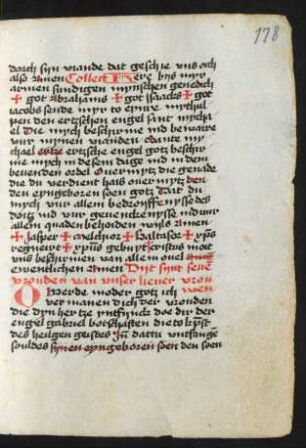 178
dorch syn viande dat geschie uns och
also Amen Collect Here bys myr
armen sundigen mynschen genedich
+ got Abrahams + got ysaacks + got
iacobs sende myr to eynre myt hul
pen den ertzschen engel sant mycha
el Die mych beschirme und beware
vur mynen vianden Sante my
chael ertzsche engel gotz beschir
me mych in desem dage und in dem
bevenden ordel Overmytz die genade
die du verdient hais overmytz den
den eyngeboren soen gotz Dat du
mych vur allem bedroiffenysse des
doitz und vur gevenckenysse und vur
allem quaden behoiden wils Amen
+ Jasper + Melchior + Baltasor + xps
regneirt + xpus gebuyt Cristus moit
uns beschirmen van allem ovel
ewentlichen Amen Dijt synt seven
vrouden van unser liever vrou
O Werde moder gotz ich wen
vermanen dich der vrouden
die dyn hertze yntfynck doe dir der
engel gabriel botschafften die
des heilgen geistes In dattu untfange
souldes synen eyngeboren soen den soen